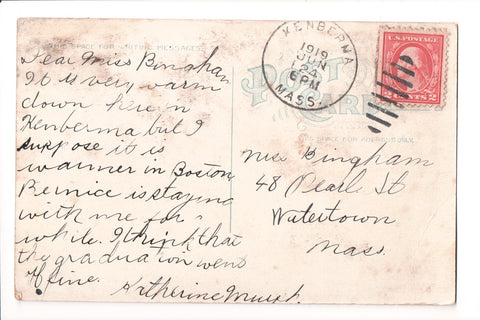 THIS SPACE FOR WRITING MESSAGES
POST CARD
THIS SPACE FOR ADDRESS ONLY.
KENBERMA
1919
JUN
24
6 PM
MASS.
U.S. POSTAGE
CENTS 2
Dear Miss Bingham
It is very warm
down here in
Kenberma but I
suppose it is
warmer in Boston
Bernice is staying
with me for a
while. I think that
the graduation went
off fine.
Katherine
Miss Bingham
48 Pearl St
Watertown
Mass.